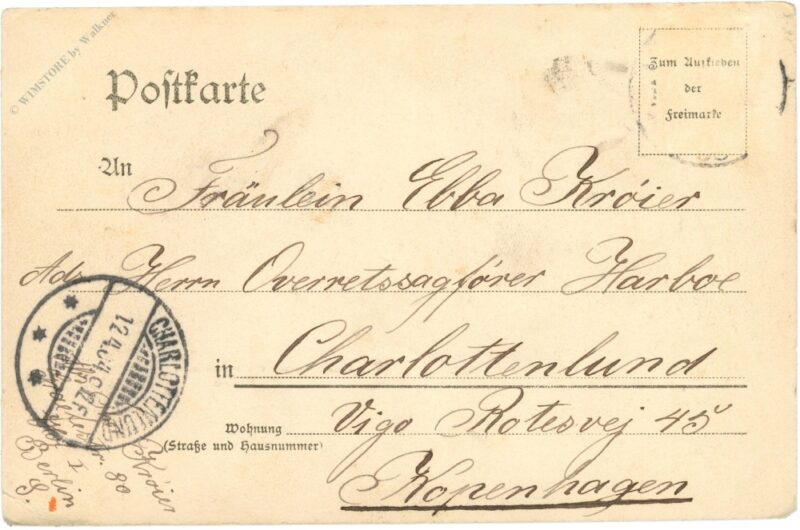 © WIMSTORE by Walkner
Postkarte
Zum Aufkleben
der
Freimarke
An
Fräulein Ebba Krøier
Adr. Herrn Overretssagfører Harboe
in Charlottenlund
Wohnung
(Straße und Hausnummer)
Vigo Rotesvej 45
Kopenhagen
CHARLOTTENLUND
12.4.04
Krøier
80
I
Berlin
S.